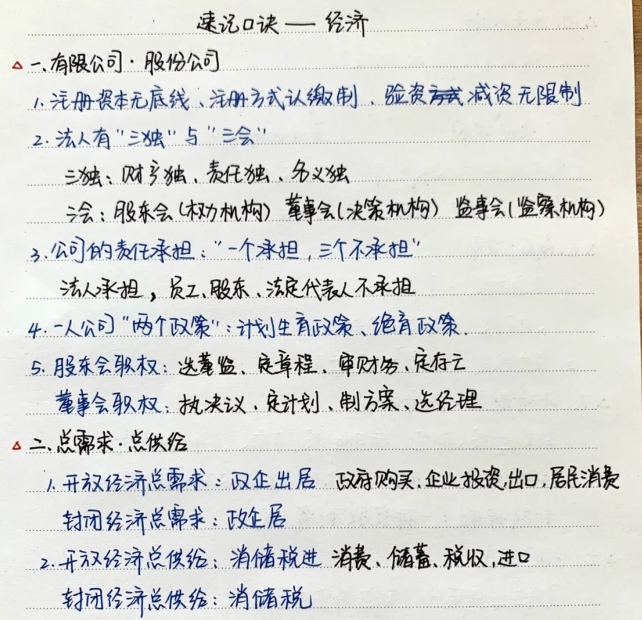 速记口诀——经济
△一、有限公司·股份公司
1. 注册资本无底线、注册方式认缴制、验资减资无限制
2. 法人有"三独"与"三会"
三独：财产独、责任独、名义独
三会：股东会（权力机构） 董事会（决策机构） 监事会（监察机构）
3. 公司的责任承担："一个承担，三个不承担"
法人承担，员工、股东、法定代表人不承担
4. 一人公司"两个政策"：计划生育政策、绝育政策.
5. 股东会职权：选董监、定章程、审财务、定存亡
董事会职权：执决议、定计划、制方案、选经理
△二、总需求·总供给
1. 开放经济总需求：政企出居 政府购买，企业投资，出口，居民消费
封闭经济总需求：政企居
2. 开放经济总供给：消储税进 消费、储蓄、税收，进口
封闭经济总供给：消储税